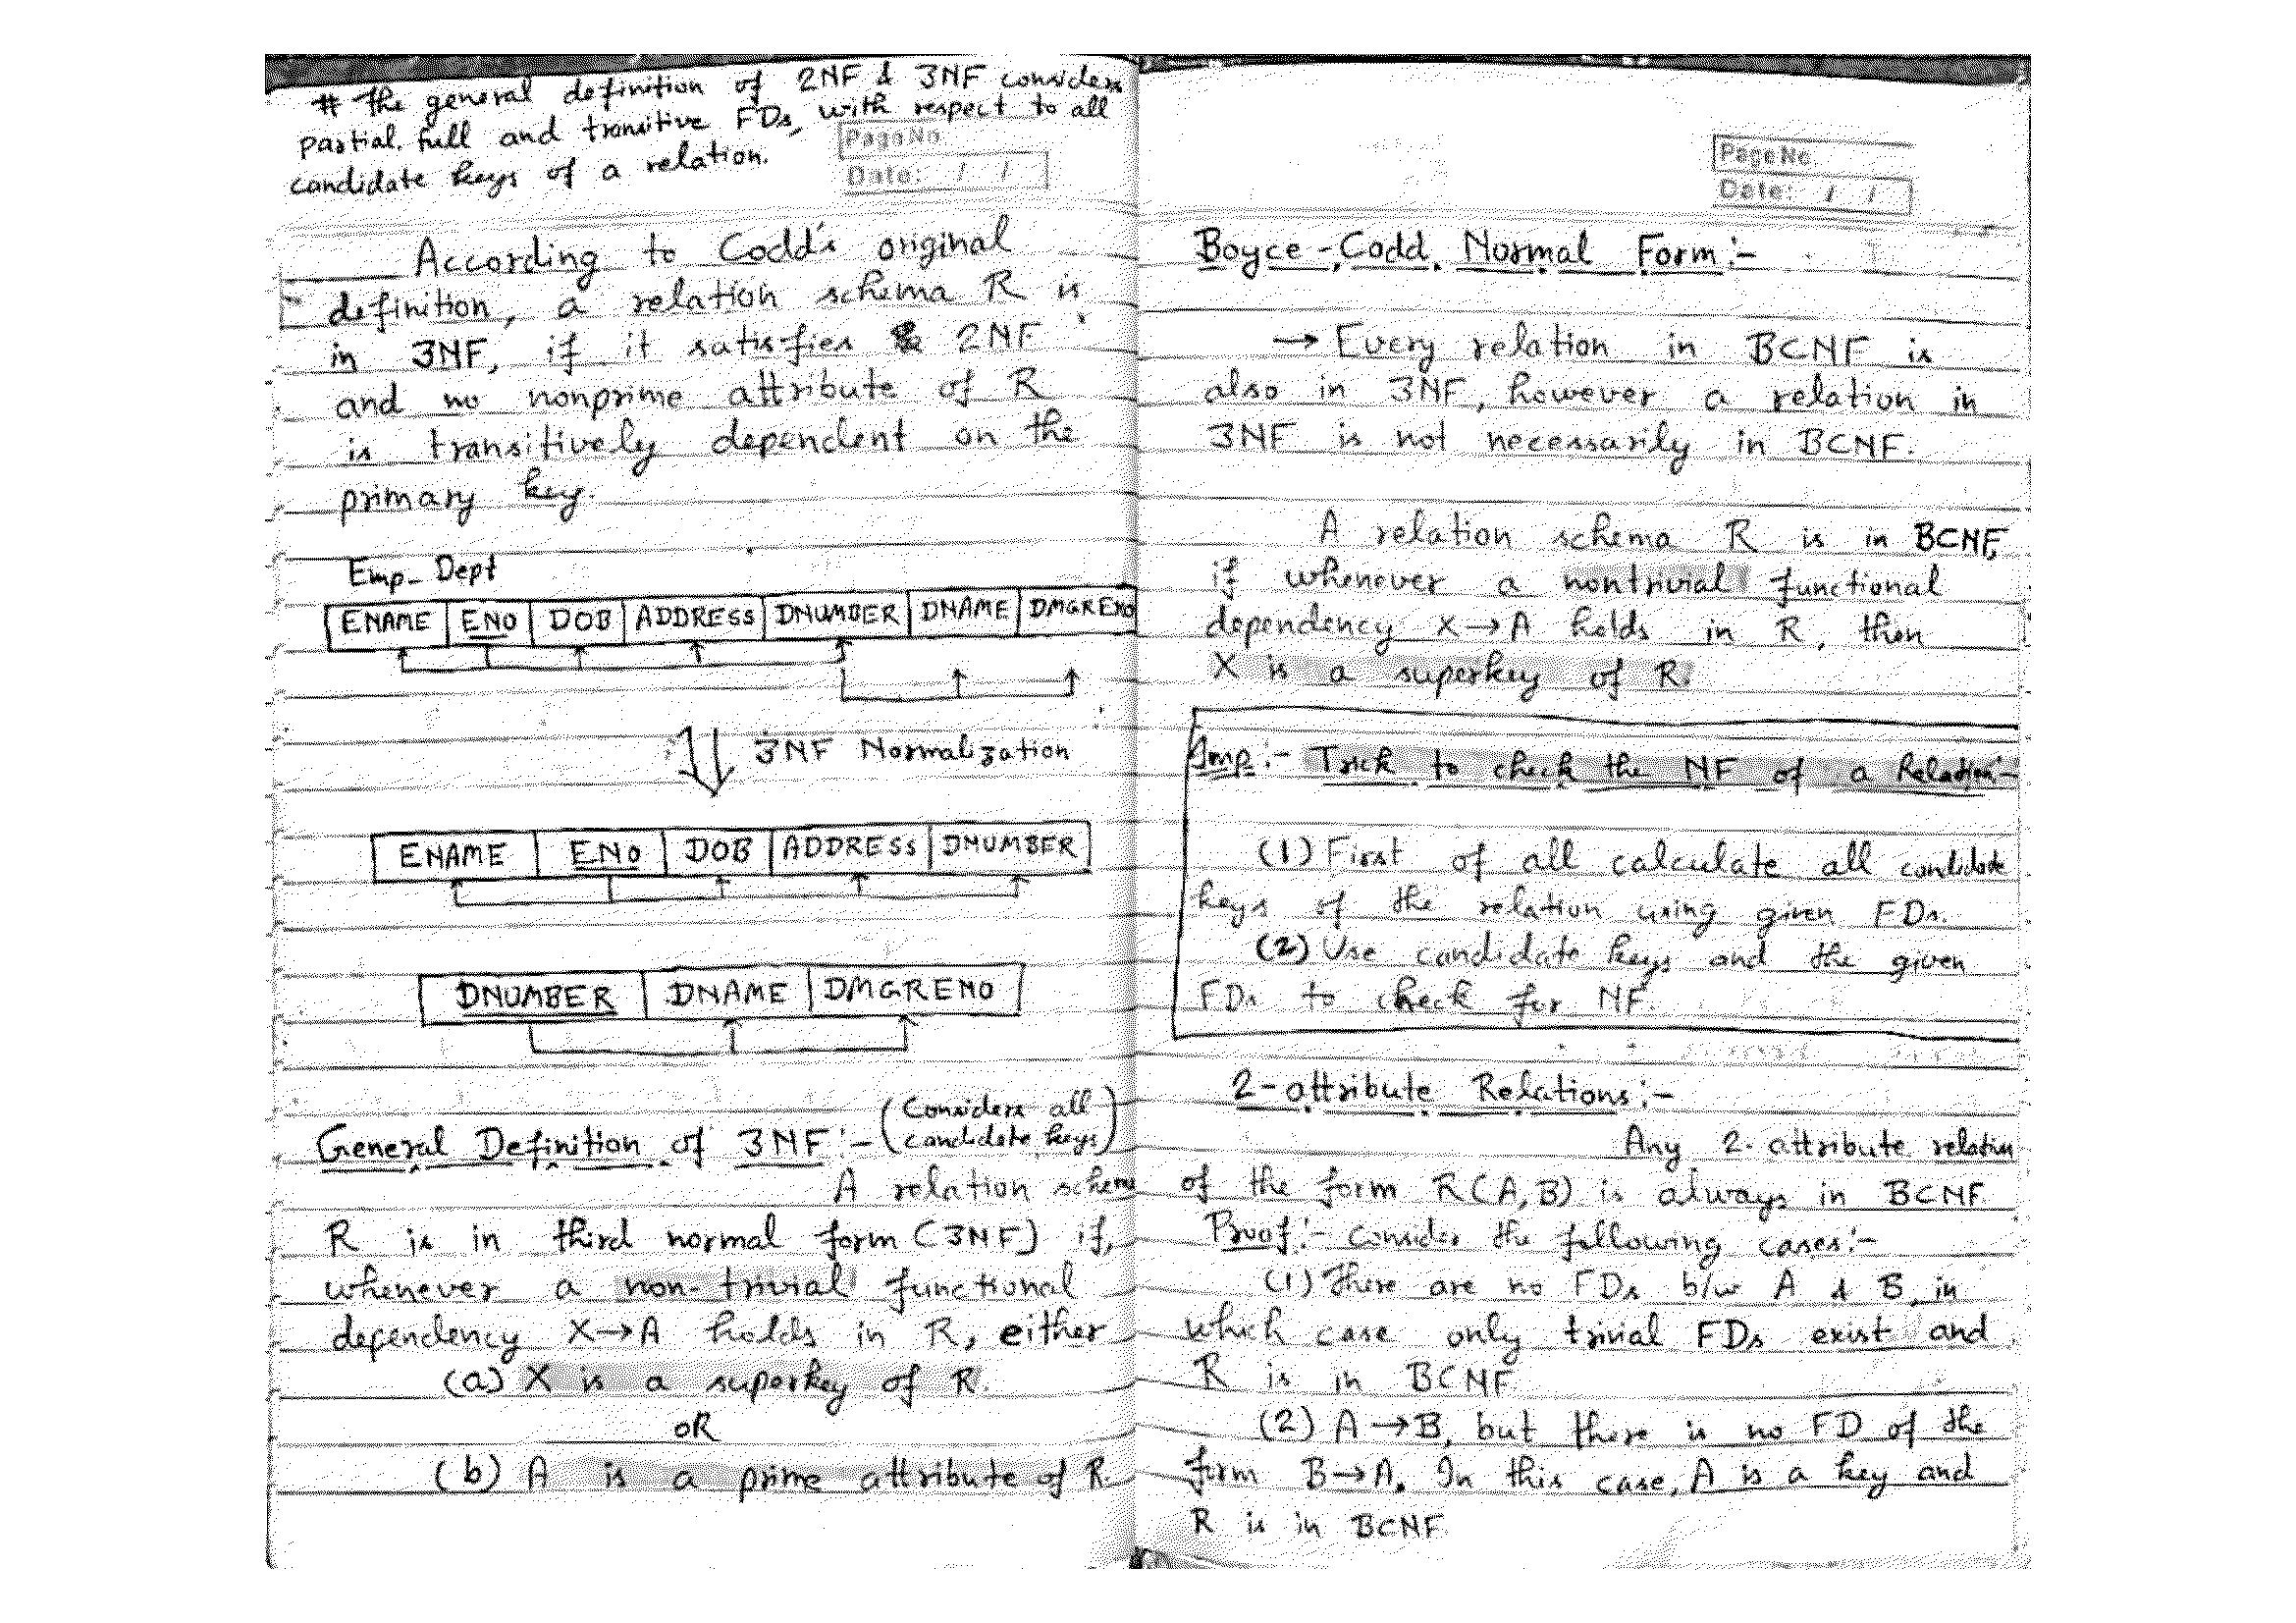 # The general definition of 2NF & 3NF considers
partial, full and transitive FDs, with respect to all
candidate keys of a relation.
Page No.
Date: / /
According to Codd's original
definition, a relation schema R is
in 3NF, if it satisfies 2NF
and no nonprime attribute of R
is transitively dependent on the
primary key.
Emp_Dept
ENAME ENO DOB ADDRESS DNUMBER DNAME DMGRENO
3NF Normalization
ENAME ENO DOB ADDRESS DNUMBER
DNUMBER DNAME DMGRENO
General Definition of 3NF :- (Considers all
candidate keys)
A relation schema
R is in third normal form (3NF) if,
whenever a non-trivial functional
dependency X→A holds in R, either
(a) X is a superkey of R.
OR
(b) A is a prime attribute of R.
Page No.
Date: / /
Boyce-Codd Normal Form :-
→ Every relation in BCNF is
also in 3NF, however a relation in
3NF is not necessarily in BCNF.
A relation schema R is in BCNF,
if whenever a nontrivial functional
dependency X→A holds in R, then
X is a superkey of R.
Imp :- Trick to check the NF of a Relation:-
(1) First of all calculate all candidate
keys of the relation using given FDs.
(2) Use candidate keys and the given
FDs to check for NF.
2-attribute Relations :-
Any 2-attribute relation
of the form R(A,B) is always in BCNF.
Proof :- Consider the following cases :-
(1) There are no FDs b/w A & B, in
which case only trivial FDs exist and
R is in BCNF.
(2) A→B, but there is no FD of the
form B→A. In this case, A is a key and
R is in BCNF.